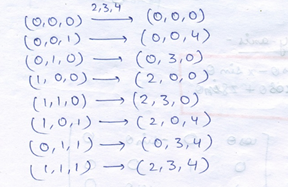 (0,0,0) 2,3,4⟶ (0,0,0)
(0,0,1) ⟶ (0,0,4)
(0,1,0) ⟶ (0,3,0)
(1,0,0) ⟶ (2,0,0)
(1,1,0) ⟶ (2,3,0)
(1,0,1) ⟶ (2,0,4)
(0,1,1) ⟶ (0,3,4)
(1,1,1) ⟶ (2,3,4)